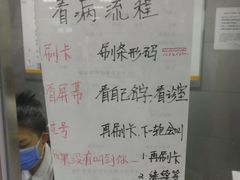 看病流程
刷卡 刷条形码
看屏幕 看自己名字,看诊室
过号 再刷卡,下一轮会叫
如果没有叫到你… 1 再刷卡
2 继续等